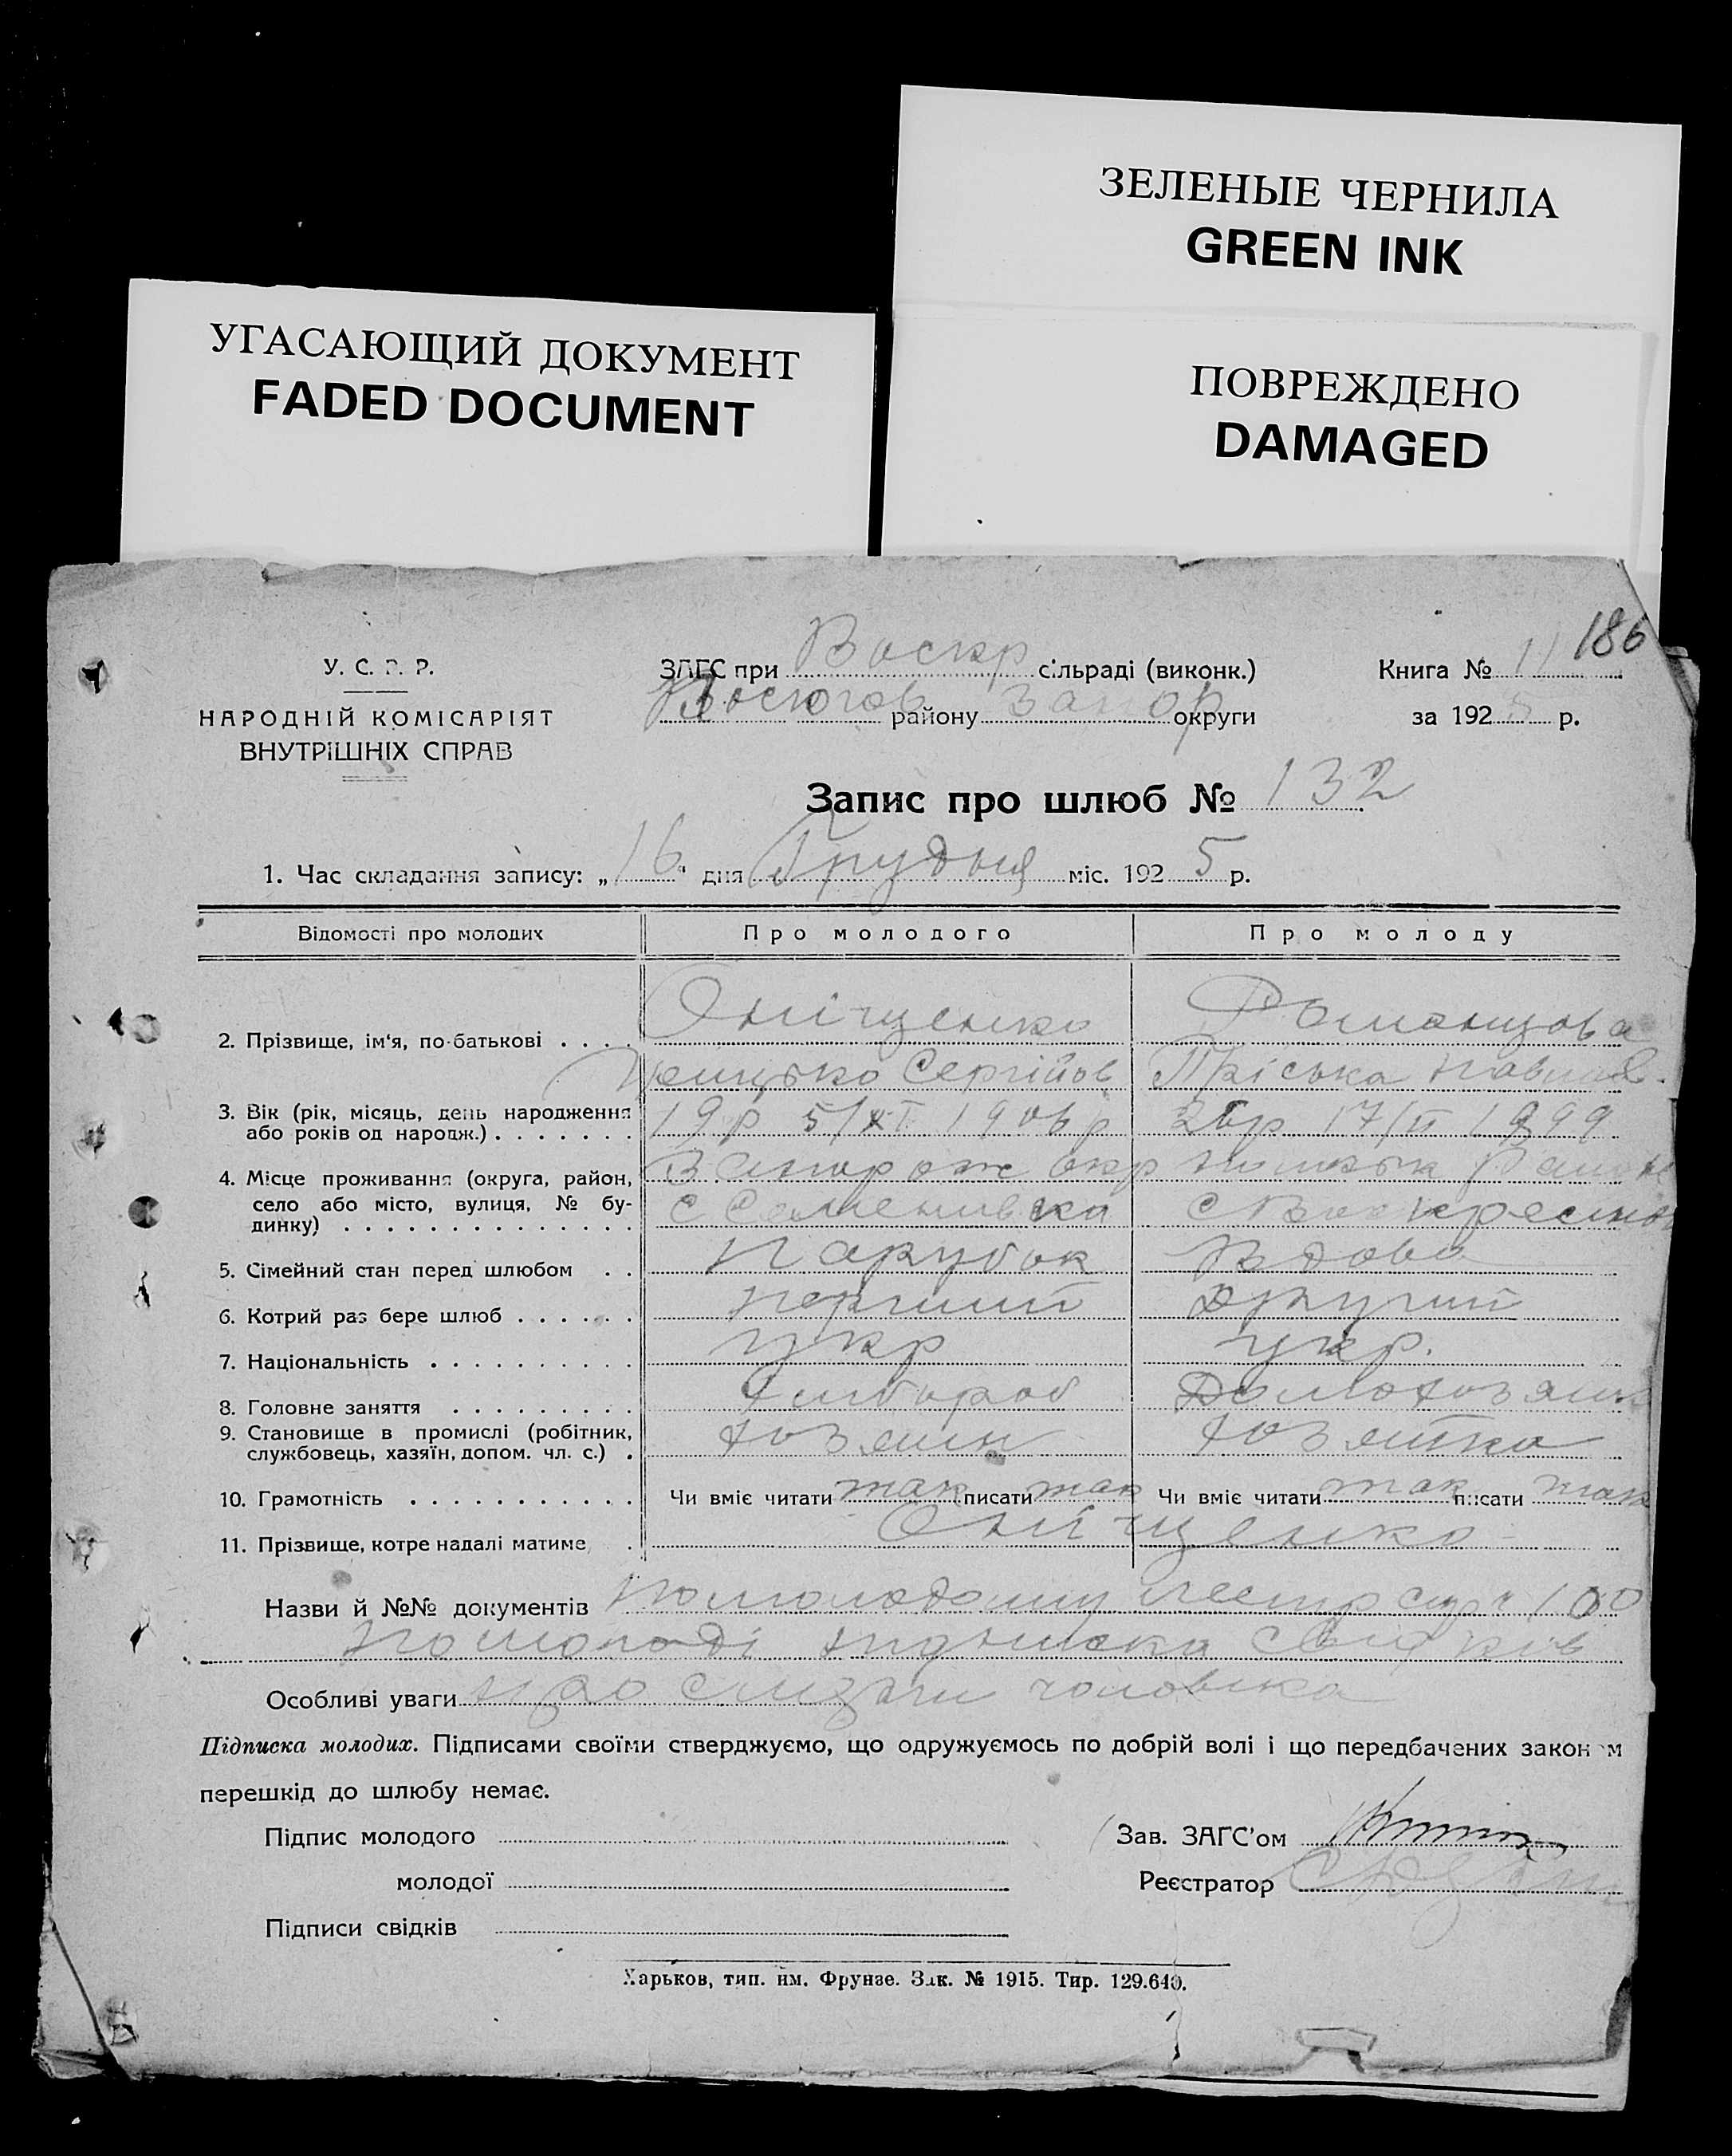 ЗЕЛЕНЫЕ ЧЕРНИЛА
GREEN INK
УГАСАЮЩИЙ ДОКУМЕНТ
FADED DOCUMENT
ПОВРЕЖДЕНО
DAMAGED
186
У. С. Р. Р.
НАРОДНІЙ КОМІСАРІЯТ
ВНУТРІШНІХ СПРАВ
ЗАГС при Воскр сільраді (виконк.)
району Запор округи
Книга № 11
за 1925 р.
Запис про шлюб № 132
1. Час складання запису: „16" дня Грудня міс. 1925 р.
Відомості про молодих Про молодого Про молоду
2. Прізвище, ім'я, по-батькові Оніщенко Романцова
Сергійов Пріська Павлов.
3. Вік (рік, місяць, день народження 19 р 5/XI 1906 р 26 р 17/II 1899
або років од народж.)
4. Місце проживання (округа, район, Запорож окр
село або місто, вулиця, № бу- с Семенивка с Воскресенк
динку)
5. Сімейний стан перед шлюбом Парубок Вдова
6. Котрий раз бере шлюб перший другий
7. Національність укр укр.
8. Головне заняття Хлібороб Домохозяйк
9. Становище в промислі (робітник, хозяин хозяйка
службовець, хазяїн, допом. чл. с.)
10. Грамотність Чи вміє читати так писати так Чи вміє читати так писати так
11. Прізвище, котре надалі матиме Оніщенко
Назви й №№ документів По молодому реестр 100
по молоді підписка свідків
Особливі уваги про смерть чоловіка
Підписка молодих. Підписами своїми стверджуємо, що одружуємось по добрій волі і що передбачених законом
перешкід до шлюбу немає.
Підпис молодого
молодої
Підписи свідків
Зав. ЗАГС'ом
Реєстратор
Харьков, тип. им. Фрунзе. Зак. № 1915. Тир. 129.640.